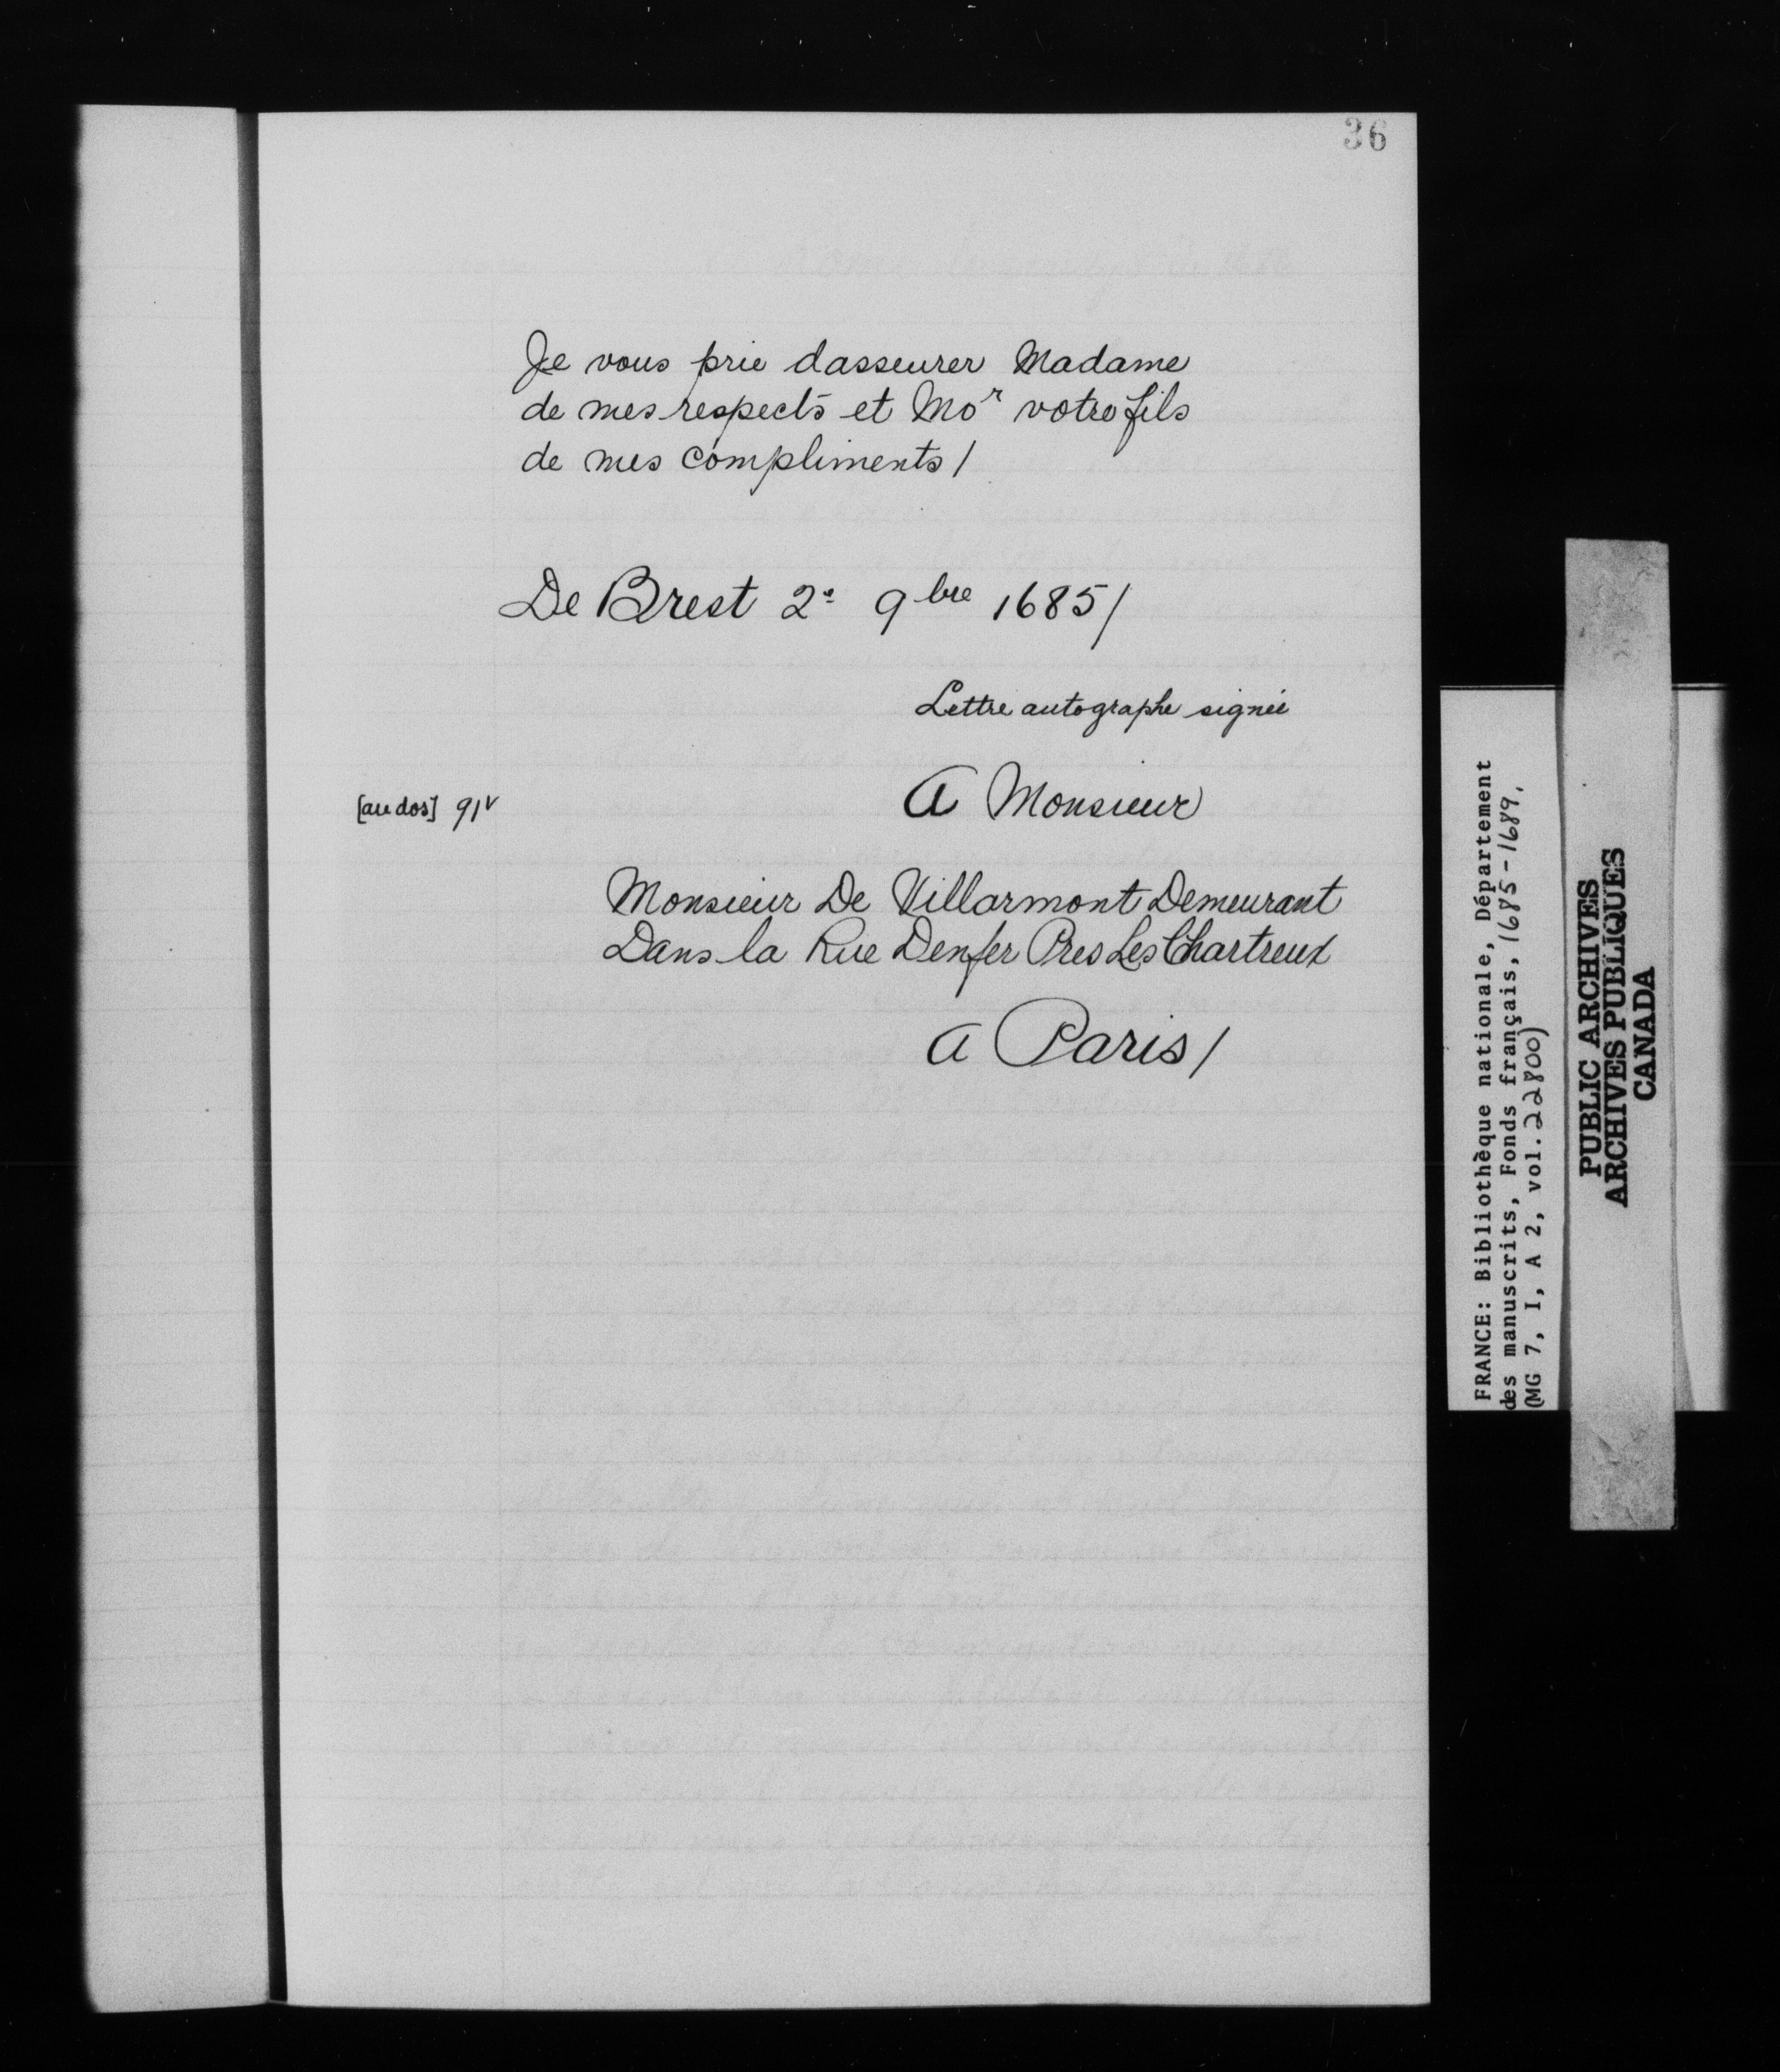 36
Je vous prie dasseurer Madame
de mes respects et Moʳ votre fils
de mes compliments /
De Brest 2ᵉ 9bre 1685 /
Lettre autographe signée
[au dos] 91ᵛ
A Monsieur
Monsieur De Villarmont Demeurant
Dans la Rue Denfer Pres Les Chartreux
a Paris /
FRANCE: Bibliothèque nationale, Département
des manuscrits, Fonds français, 1685-1689,
(MG 7, I, A 2, vol. 22800)
PUBLIC ARCHIVES
ARCHIVES PUBLIQUES
CANADA